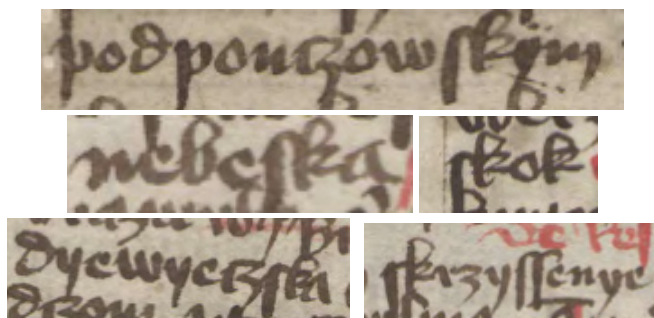 podponczowſkym
nebeſka ſkok
dyewyeczſka ſkrzyſſenye